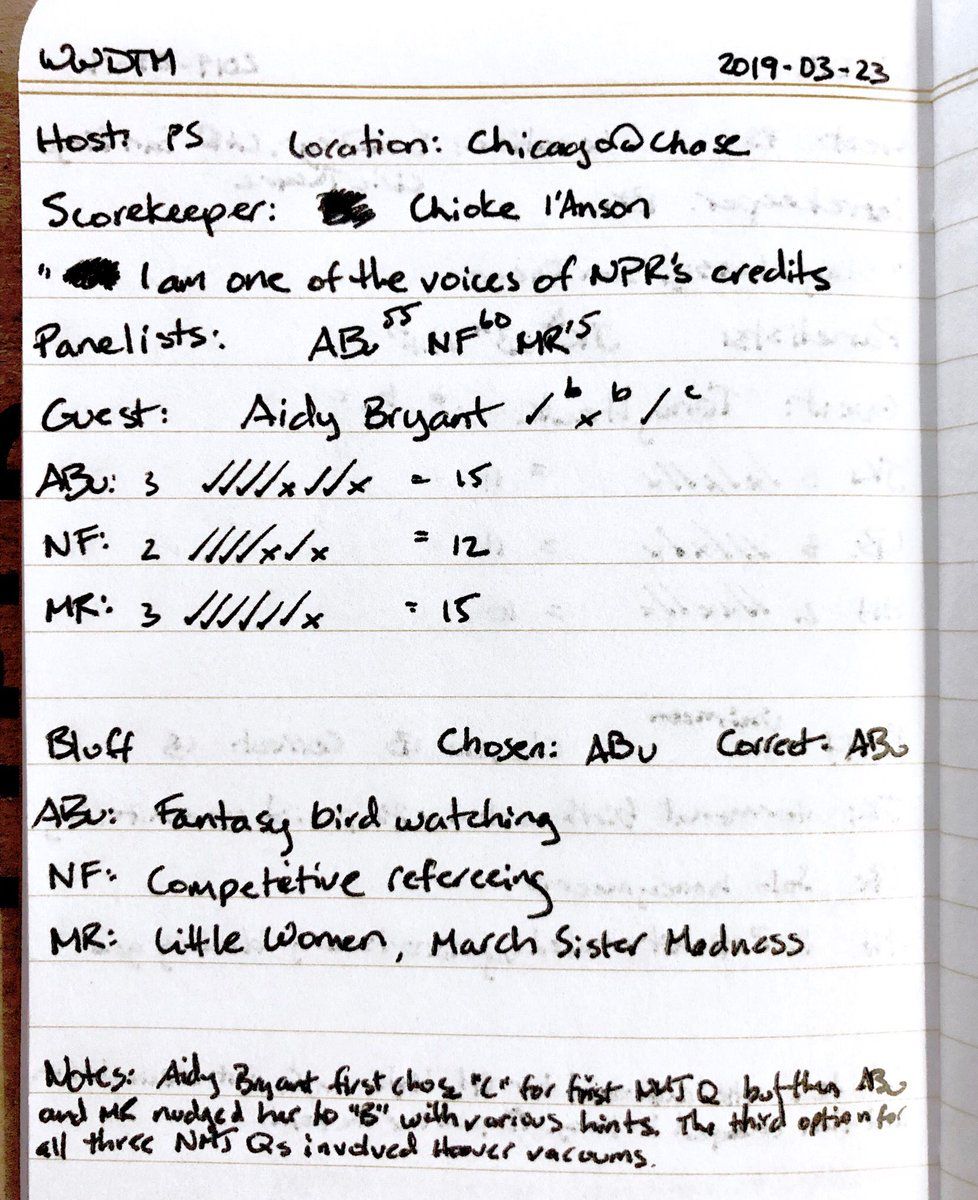 WWDTM 2019-03-23
Host: PS Location: Chicago @ Chase
Scorekeeper: Chioke I'Anson
" I am one of the voices of NPR's credits
Panelists: ABu 55 NF 60 MR 15
Guest: Aidy Bryant ✓ b x b ✓ c
ABu: 3 ✓✓✓✓x✓✓x = 15
NF: 2 ✓✓✓✓x✓x = 12
MR: 3 ✓✓✓✓✓✓x = 15
Bluff Chosen: ABu Correct: ABu
ABu: Fantasy bird watching
NF: Competitive refereeing
MR: Little Women, March Sister Madness
Notes: Aidy Bryant first chose "C" for first NMJ Q but then ABu
and MR nudged her to "B" with various hints. The third option for
all three NMJ Qs involved Hoover vacuums.